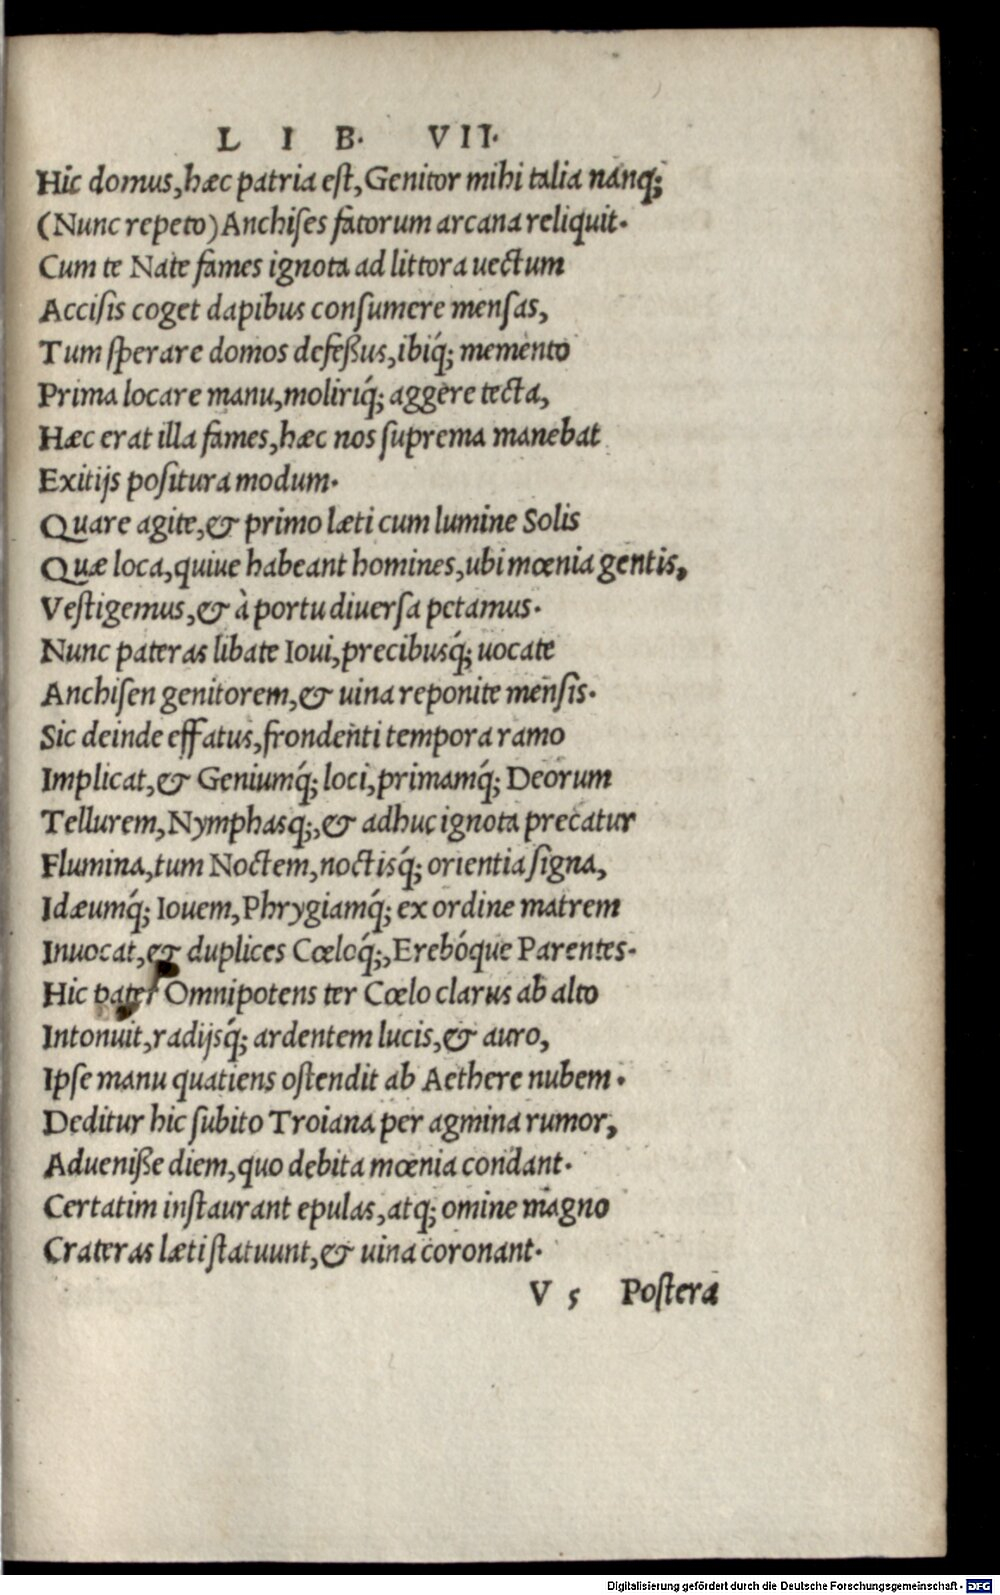 L I B. VII.
Hic domus, hæc patria est, Genitor mihi talia nanq;
(Nunc repeto) Anchiſes fatorum arcana reliquit.
Cum te Nate fames ignota ad littora uectum
Acciſis coget dapibus conſumere menſas,
Tum ſperare domos defeßus, ibiq́; memento
Prima locare manu, moliriq́; aggere tecta,
Hæc erat illa fames, hæc nos ſuprema manebat
Exitijs poſitura modum.
Quare agite, & primo læti cum lumine Solis
Quæ loca, quiue habeant homines, ubi mœnia gentis,
Veſtigemus, & à portu diuerſa petamus.
Nunc pateras libate Ioui, precibusq́; uocate
Anchiſen genitorem, & uina reponite menſis.
Sic deinde effatus, frondenti tempora ramo
Implicat, & Geniumq́; loci, primamq́; Deorum
Tellurem, Nymphasq;, & adhuc ignota precatur
Flumina, tum Noctem, noctisq́; orientia ſigna,
Idæumq́; Iouem, Phrygiamq́; ex ordine matrem
Inuocat, & duplices Cœloq́;, Erebóque Parentes.
Hic pater Omnipotens ter Cœlo clarus ab alto
Intonuit, radijsq́; ardentem lucis, & auro,
Ipſe manu quatiens oſtendit ab Aethere nubem.
Deditur hic ſubito Troiana per agmina rumor,
Adueniße diem, quo debita mœnia condant.
Certatim inſtaurant epulas, atq; omine magno
Crateras læti ſtatuunt, & uina coronant.
V 5 Poſtera
Digitalisierung gefördert durch die Deutsche Forschungsgemeinschaft - DFG